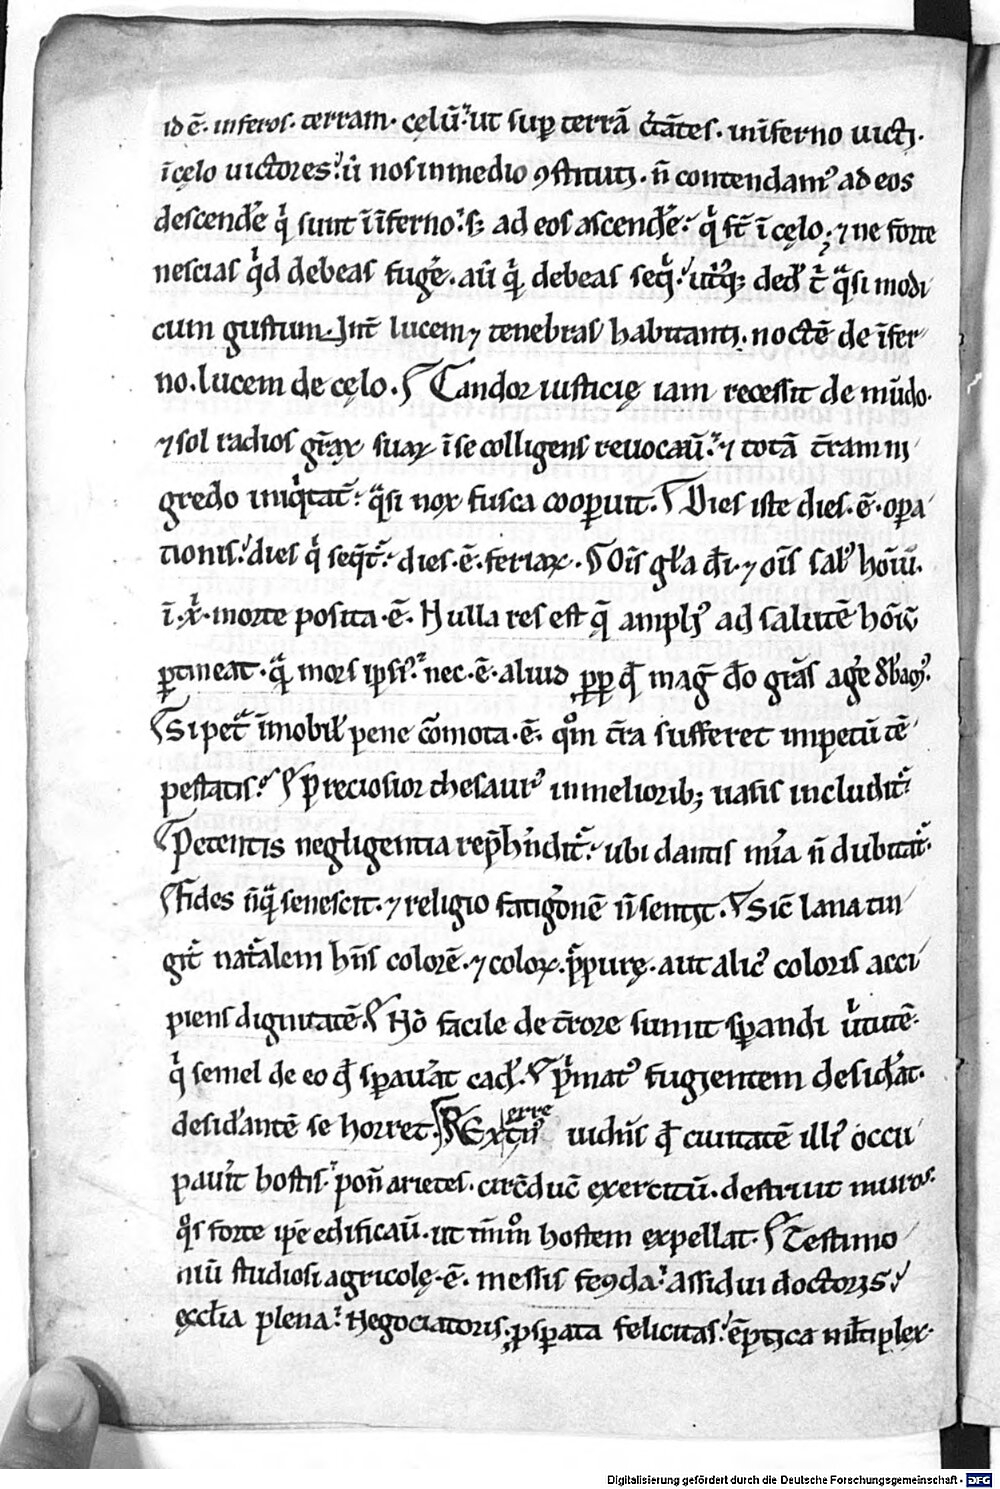 id ē. inferos. terram. cęlū. ut sup terrā c̄tātes. in īferno uicti.
ī cęlo uictores. ū nos in medio ꝯstituti. n̄ contendam᾽ ad eos
descendēe q̇ sunt ī īferno. sꝫ ad eos ascendēe. q̇ st̄ ī cęlo. ⁊ ne forte
nescias qd debeas fugēe. aū q̇ debeas seq̇. utrūqꝫ ded᾽ t̄ qͣsi modi
cum gustum. Int̄ lucem ⁊ tenebras habitanti. noctē de īfer
no. lucem de cęlo. Candor iusticię iam recessit de mūdo.
⁊ sol radios grāꝝ suaꝝ ī se colligens reuocaū. ⁊ totā t̄ram ni
gredo iniqͥtat̄. qͣsi nox fusca coopuit. Dies iste dies. ē. opa
tionis. dies q̇ seqͥt᾽. dies. ē. feriaꝝ. Ois̄ gl̄a dī. ⁊ ois̄ sal᾽ hoīū.
ī. xͥ. morte posita. ē. Nulla res est q̄ ampl᾽ ad salutē hōiū
ꝑtineat. qͣ mors ipsi᾽. nec. ē. aliud ꝓpꝑ qd̄ mag̅ dō grās agēe
Si petͣ īmobil᾽ pene cōmota. ē. qͦm t̄ra sufferet impetū tē
pestatis. Preciosior thesaur᾽ in meliorib; uasis includit᾽.
Petentis negligentia rep̄h̄ndit᾽. ubi dantis mīa n̄ dubitat᾽.
Fides n̄qͣ senescit. ⁊ religio fatigōnē n̄ sentit. Sic̄ lana tin
git᾽ nat᾽alem hn̄s colorē. ⁊ coloꝝ. pͥpurę. aut alic᾽ coloris acci
piens dignitatē. Hō facile de t̄rore sumit spandi u̇tutē.
q̇ semel de eo qd̄ spau᾽at cad᾽. Pͥmat᾽ fugientem desid᾽at.
desid᾽antē se horret. Rex erre uidn̄s qd̄ ciuitatē ill᾽ occu
pau᾽it hostis. pon̄ arietes. circūduc̄ exercitū. destruit muros.
qͦs forte ipe edificaū. ut hostem expellat. Testimo
niū studiosi agricolę. ē. messis feꝯda. assidui doctoris.
ęccl̄ia plena. Negociatoris. ꝓspata felicitas.